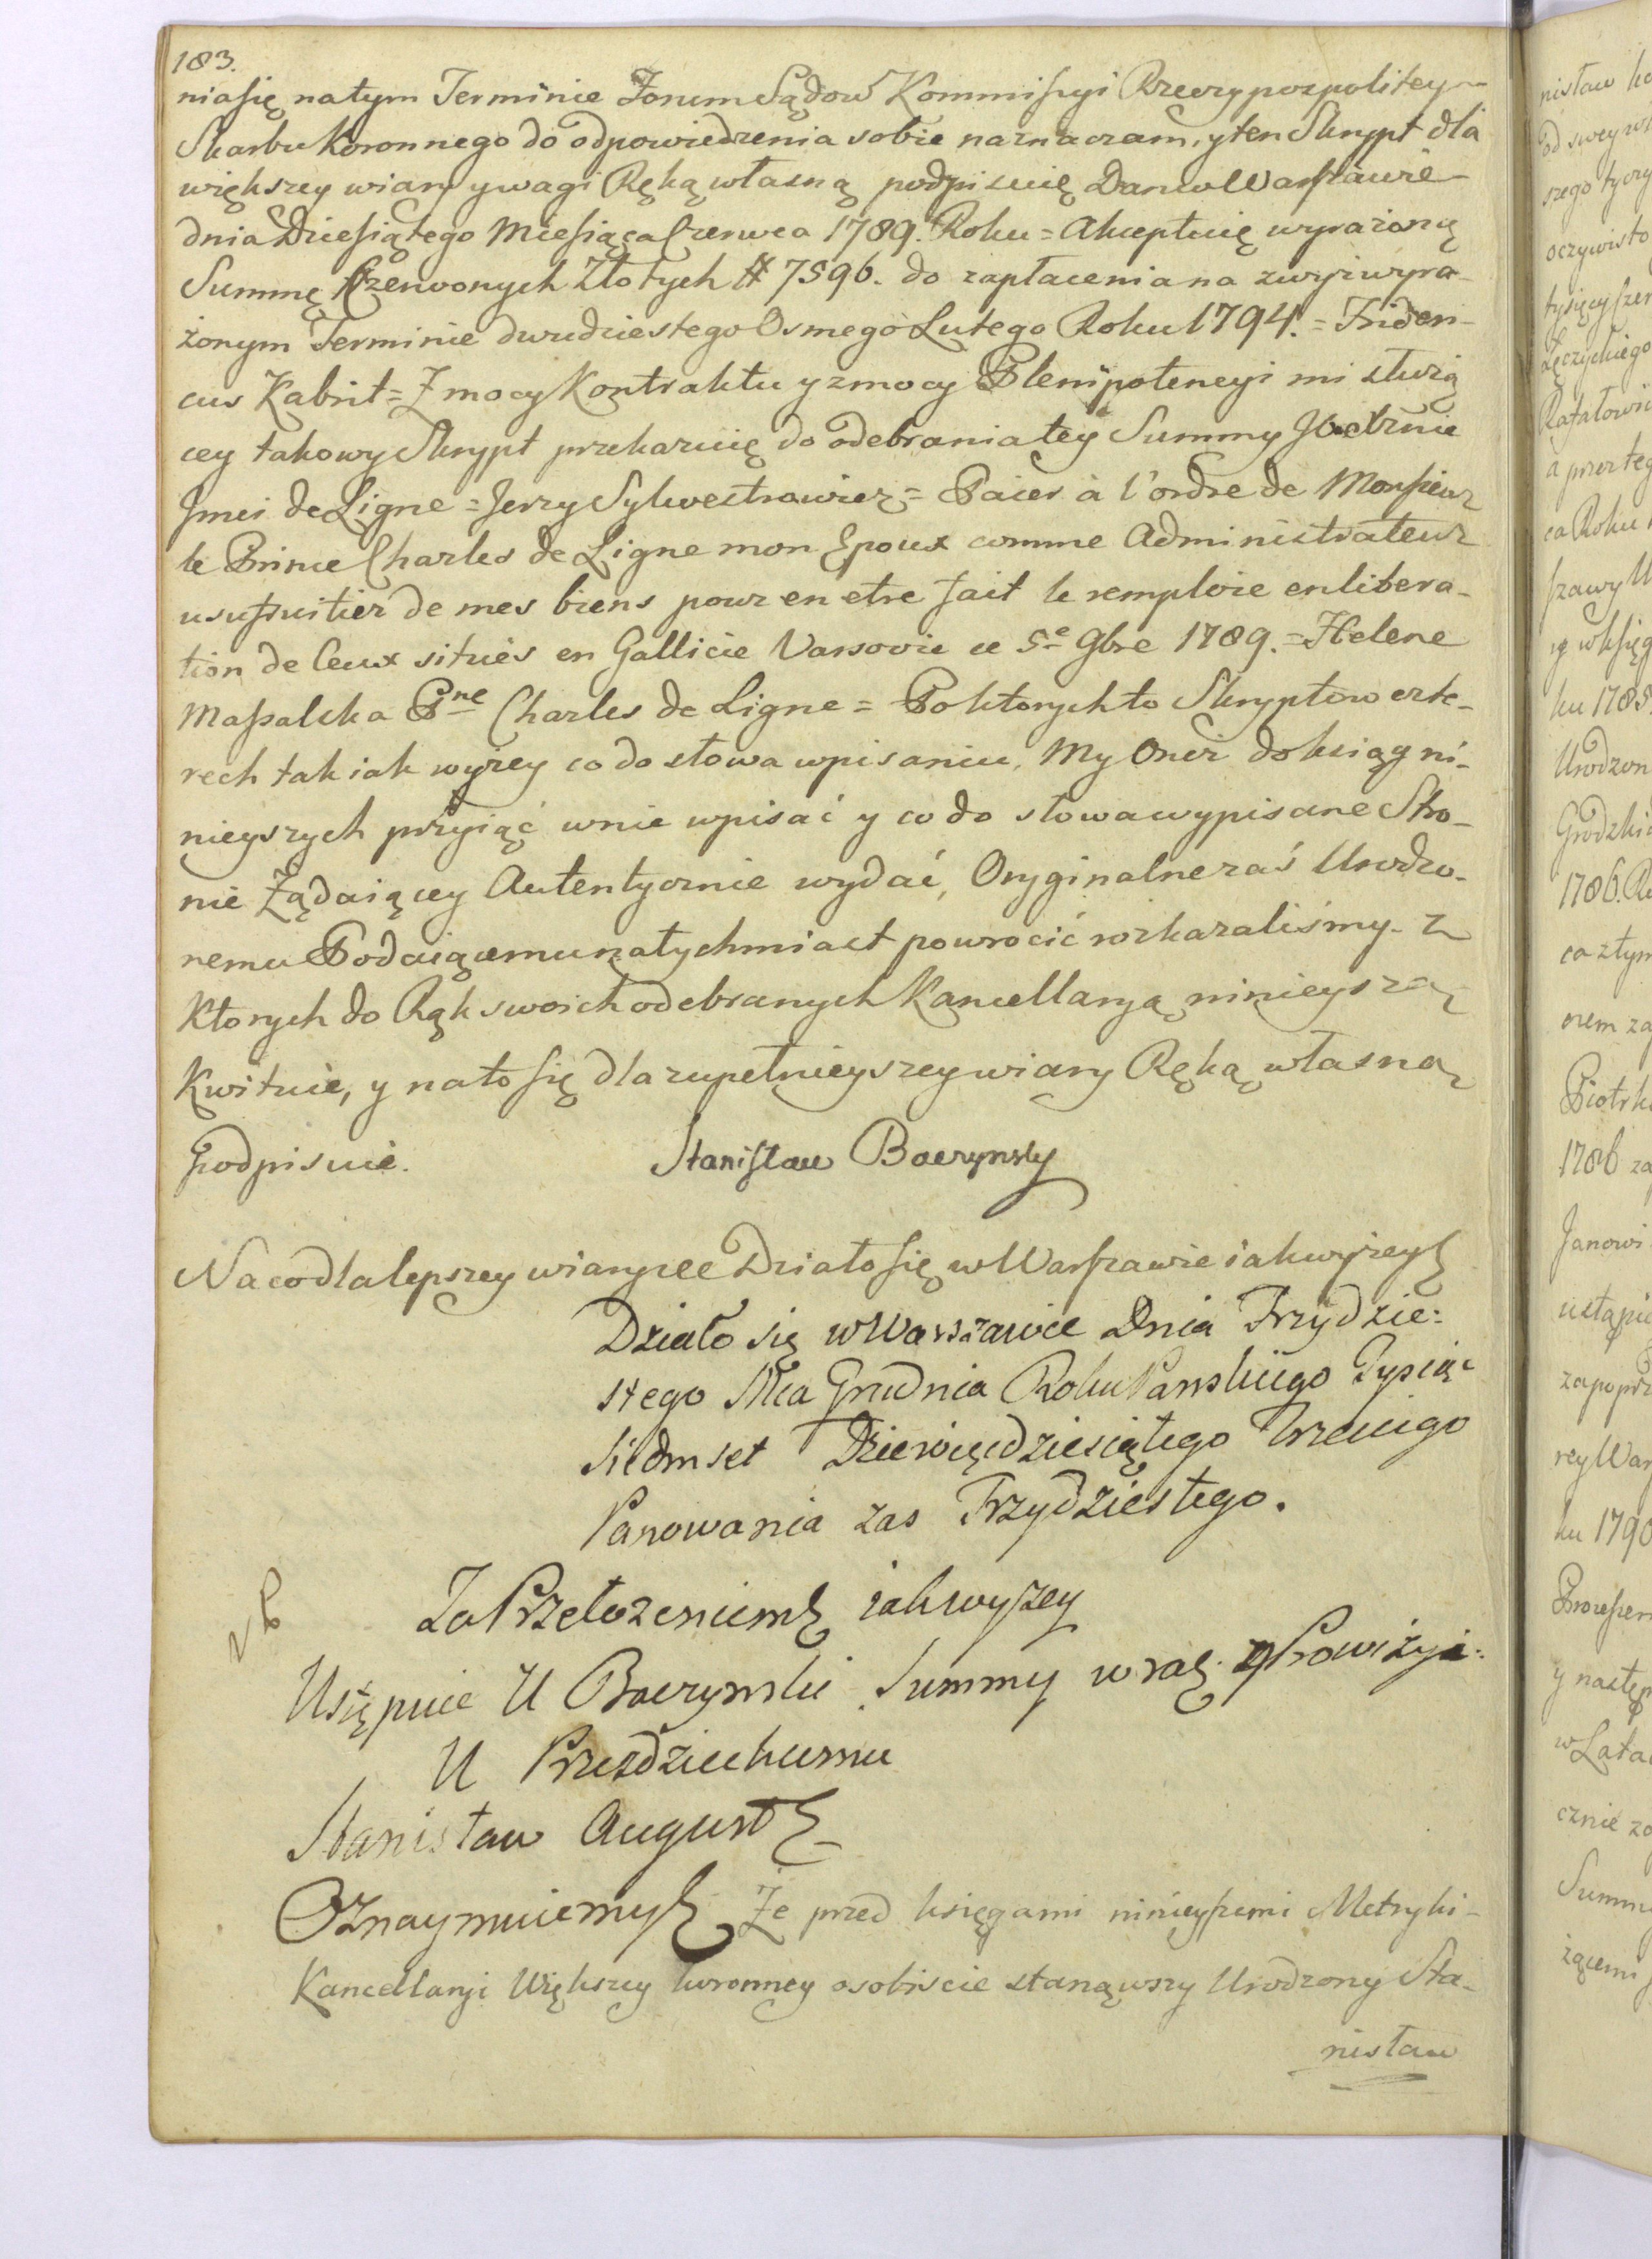 183.
nia się na tym Terminie Forum Sądow Kommissyi Rzeczypospolitey
Skarbu Koronnego do odpowiedzenia sobie naznaczam, y ten Skrypt dla
większey wiary y wagi Ręką własną podpisuię Dan w Warszawie
dnia Dziesiątego Miesiąca Czerwca 1789. Roku = Akceptuię wyrażoną
Summę Czerwonych Złotych # 7596. do zapłacenia na zwyż wyra-
żonym Terminie dwudziestego Osmego Lutego Roku 1794. = Frideri-
cus Kabrit = Z mocy Kontraktu y z mocy Plenipotencyi mi służą
cey takowy Skrypt przekazuię do odebrania tey Summy
Jmci de Ligne = Jerzy Sylwestrowicz = Païes à l'ordre de Monsieur
le Prince Charles de Ligne mon Epoux comme Administrateur
usufruitier de mes biens pour en etre fait le remploie en libera-
tion de Ceux situés en Gallicie Varsovie ce 5e 9bre 1789. = Helene
Massalska Pne Charles de Ligne = Po ktorych to Skryptow czte-
rech tak iak wyżey co do słowa wpisaniu, My Oneż do ksiąg ni-
nieyszych przyiąć w nie wpisać y co do słowa wypisane Stro-
nie Żądaiącey Autentycznie wydać, Oryginalne zaś Urodzo-
nemu Podaiącemu natychmiast powrocić rozkazaliśmy. z
Ktorych do Rąk swoich odebranych Kancellaryą ninieyszą
Kwituie, y na to się dla zupełnieyszey wiary Ręką własną
podpisuie. Stanisław Baczynsky
Na co dla lepszey wiary &c Działo się w Warszawie iak wyżey
Działo się w Warszawie Dnia Trzydzie:
stego Mca Grudnia Roku Panskiego Tysiąc
Siedmset Dziewięcdziesiątego Trzeciego
Panowania zas Trzydziestego.
Za Przełożeniem iak wyszey
NB
Ustępuie U Baczynski Summy wraz z Prowizyą:
U Przezdzieckiemu
Stanisław August
Oznaymuiemy Że przed księgami ninieyszemi Metryki
Kancellaryi Większey koronney osobiscie stanąwszy Urodzony Sta-
nisław
nisław
od swey
szego tyczy
oczywisto
tysięcy
Łęczyckiego
Rafałowi
a przez teg
ca Roku
szawy
w ksieg
ku 178
Urodzon
Grodzki
1786. R
co z tym
nem za
Piotrk
1786 za
Janowi
ustąpie
zapoprz
rey War
ku 1790
y następ
w Lata
cznie za
Summ
żącemi